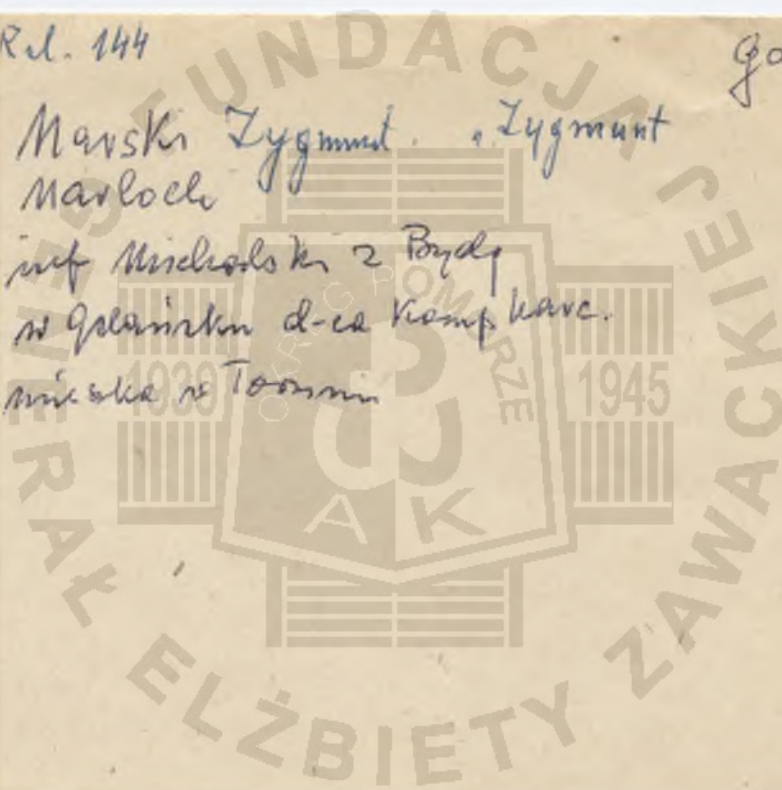 Rel. 144
Go
Marski Zygmunt. "Zygmunt
Marloch
inf Michalski z Bydg
w Gdańsku d-ca Komp. karc.
mieszka w Toruniu
FUNDACJA GENERAŁ ELŻBIETY ZAWACKIEJ
OKRĘG POMORZE
1939 1945
AK